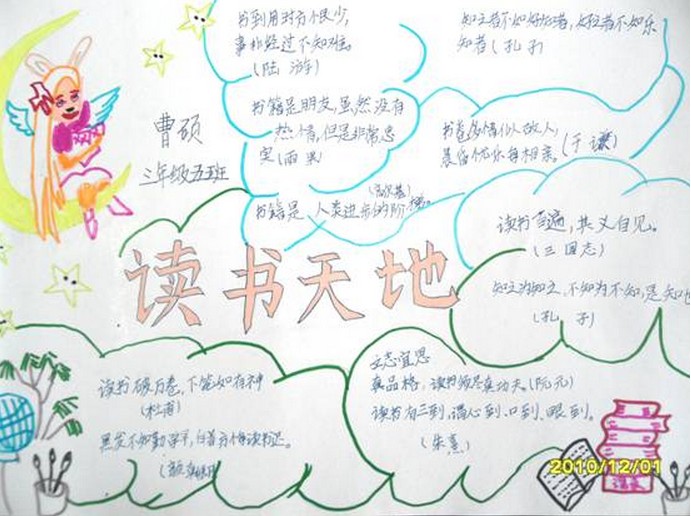 书到用时方恨少,
事非经过不知难。
(陆 游)
知之者不如好之者, 好之者不如乐
知者(孔子)
书籍是朋友,虽然没有
热情,但是非常忠
实(雨果)
书卷多情似故人,
晨昏忧乐每相亲。(于谦)
曹硕
三年级五班
(高尔基)
书籍是人类进步的阶梯。
读书百遍,其义自见。
(三国志)
知之为知之,不知为不知,是知也
(孔 子)
读书天地
读书破万卷,下笔如有神
(杜甫)
黑发不知勤学早,白首方悔读书迟。
(颜真卿)
立志宜思
真品格,读书须尽真功夫。(阮元)
读书有三到,谓心到、口到、眼到。
(朱熹)
语文
2010/12/01